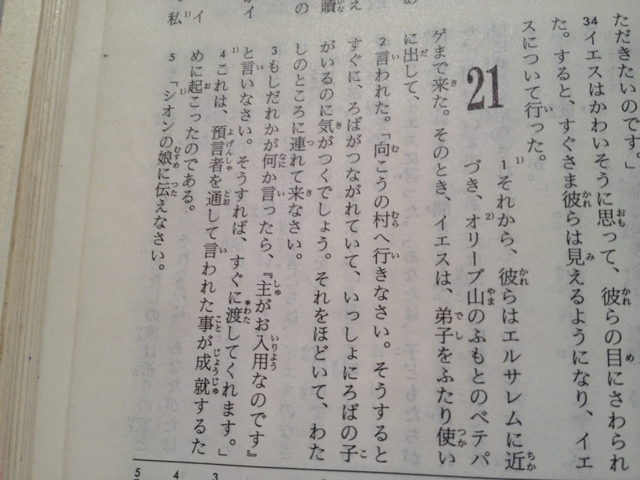 ただきたいのです。」
34イエスはかわいそうに思って、彼らの目にさわられ
た。すると、すぐさま彼らは見えるようになり、イエ
スについて行った。
21
1それから、彼らはエルサレムに近
づき、オリーブ山のふもとのベテパ
ゲまで来た。そのとき、イエスは、弟子をふたり使い
に出して、
2言われた。「向こうの村へ行きなさい。そうすると
すぐに、ろばがつながれていて、いっしょにろばの子
がいるのに気がつくでしょう。それをほどいて、わた
しのところに連れて来なさい。
3もしだれかが何か言ったら、『主がお入用なのです』
と言いなさい。そうすれば、すぐに渡してくれます。」
4これは、預言者を通して言われた事が成就するた
めに起こったのである。
5「シオンの娘に伝えなさい。